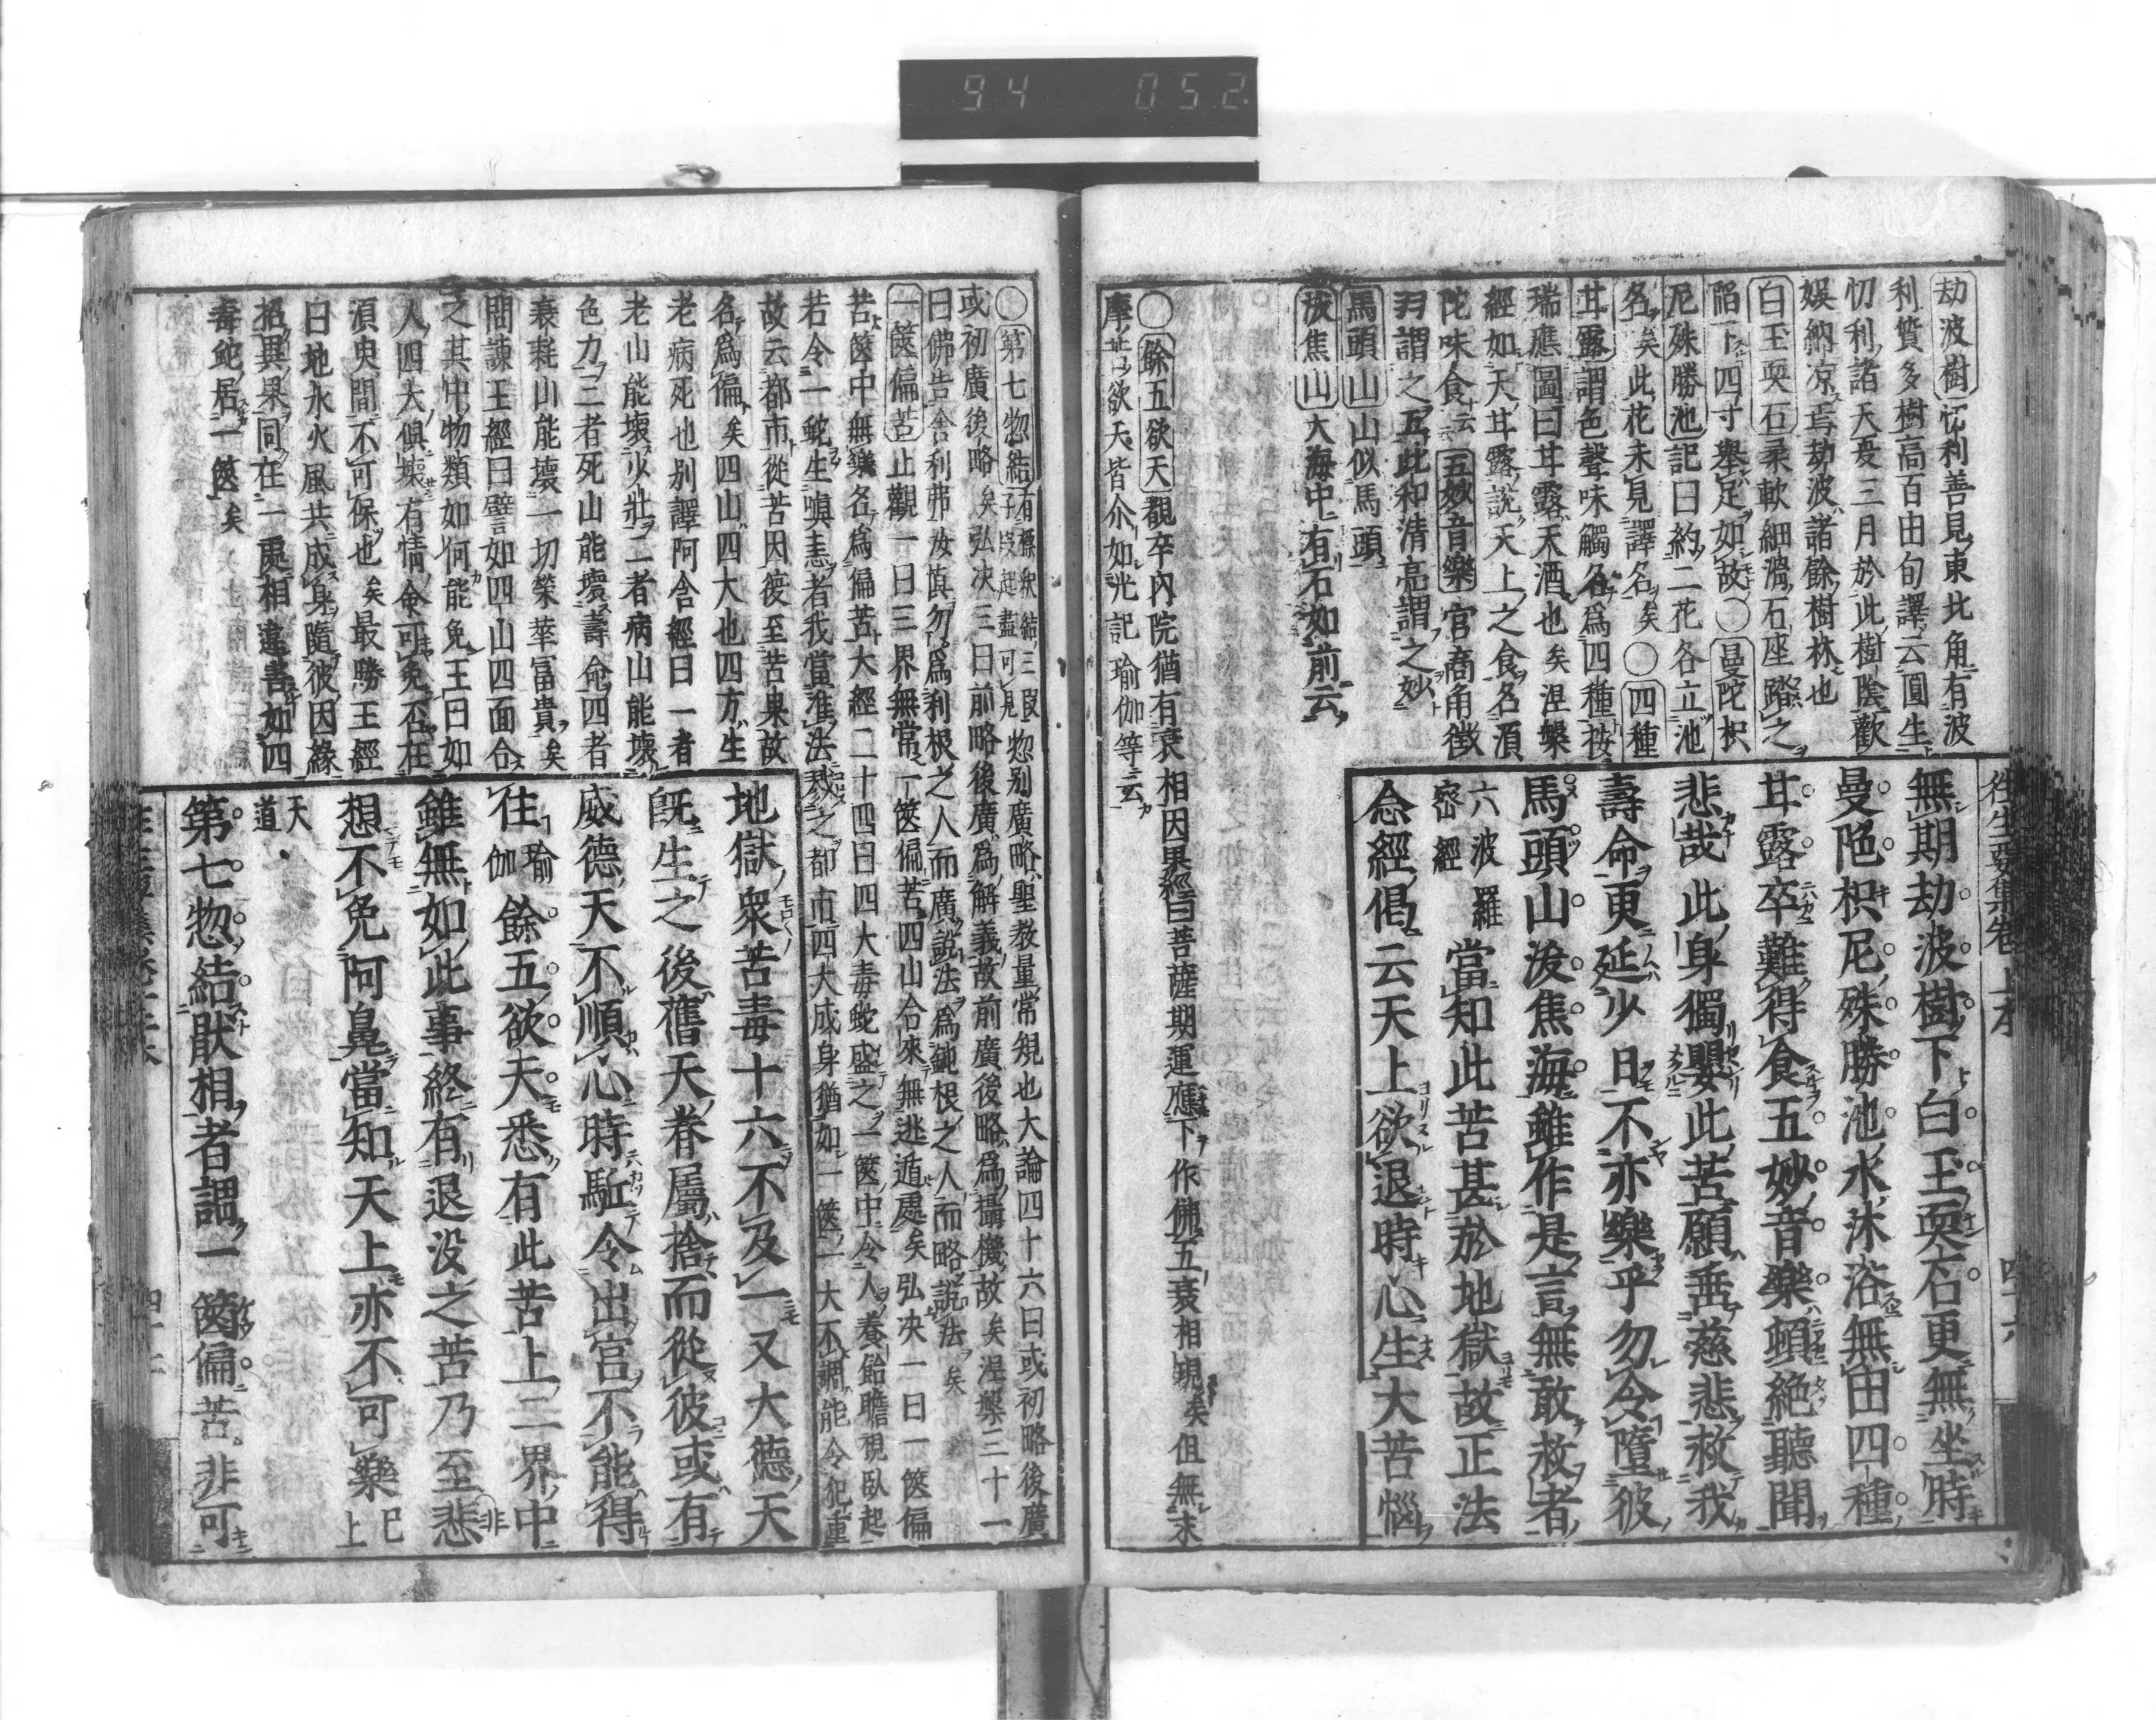 94 052
往生要集卷上本
四十六
劫波樹忉利善見東北角有波
利質多樹高百由旬譯云圓生
忉利諸天夏三月於此樹陰歡
娯納凉焉劫波諸餘樹林也
白玉耎石柔軟細滑石座踏之
陷下四寸舉足如故〇曼陀枳
尼殊勝池記曰約二花各立池
名矣此花未見譯名矣〇四種
甘露謂色聲味觸各爲四種按
瑞應圖曰甘露天酒也矣涅槃
經如天甘露說天上之食名須
陀味食云云五妙音樂宮商角徴
羽謂之五此和清亮謂之妙
馬頭山山似馬頭
沃焦山大海中有石如前云
無期劫波樹下白玉耎石更無坐時
曼陁枳尼殊勝池水沐浴無由四種
甘露卒難得食五妙音樂頓絶聽聞
悲哉此身獨嬰此苦願垂慈悲救我
壽命更延少日不亦樂乎勿令墮彼
馬頭山沃焦海雖作是言無敢救者
六波羅
密經
當知此苦甚於地獄故正法
念經偈云天上欲退時心生大苦惱
〇餘五欲天覩卒内院猶有衰相因果經曰菩薩期運應下作佛五衰相現矣但無末
摩苦欲天皆尒如光記瑜伽等云云
〇第七惣結有標釈結三段
子段起盡可見
惣別廣略聖教量常規也大論四十六曰或初略後廣
或初廣後略矣弘决三曰前略後廣爲解義故前廣後略爲攝機故矣涅槃三十一
曰佛告舍利弗汝慎勿爲利根之人而廣說法爲鈍根之人而略說法矣
一篋偏苦止觀一曰三界無常一篋偏苦四山合來無逃遁處矣弘决一曰一篋偏
苦篋中無樂名爲偏苦大經二十四曰四大毒蛇盛之一篋中令人養飴瞻視臥起
若令一蛇生嗔恚者我當准法戮之都市四大成身猶如一篋一大不調能令犯重
故云都市從苦因後至苦果故
名爲偏矣四山四大也四方生
老病死也別譯阿含經曰一者
老山能壞少壯二者病山能壞
色力三者死山能壞壽命四者
衰耗山能壞一切榮華富貴矣
問諫王經曰譬言如四山四面合
之其中物類如何能免王曰如
人四大倶壞有情命可免否在
須臾間不可保也矣最勝王經
曰地水火風共成身隨彼因緣
招異果同在一處相違害如四
毒蛇居一篋矣
地獄衆苦毒十六不及一又大德天
既生之後舊天眷屬捨而從彼或有
威德天不順心時駈令出宮不能得
住瑜
伽
餘五欲天悉有此苦上二界中
雖無如此事終有退没之苦乃至悲非
想不免阿鼻當知天上亦不可樂已
上
天
道
第七惣結厭相者謂一篋偏苦非可